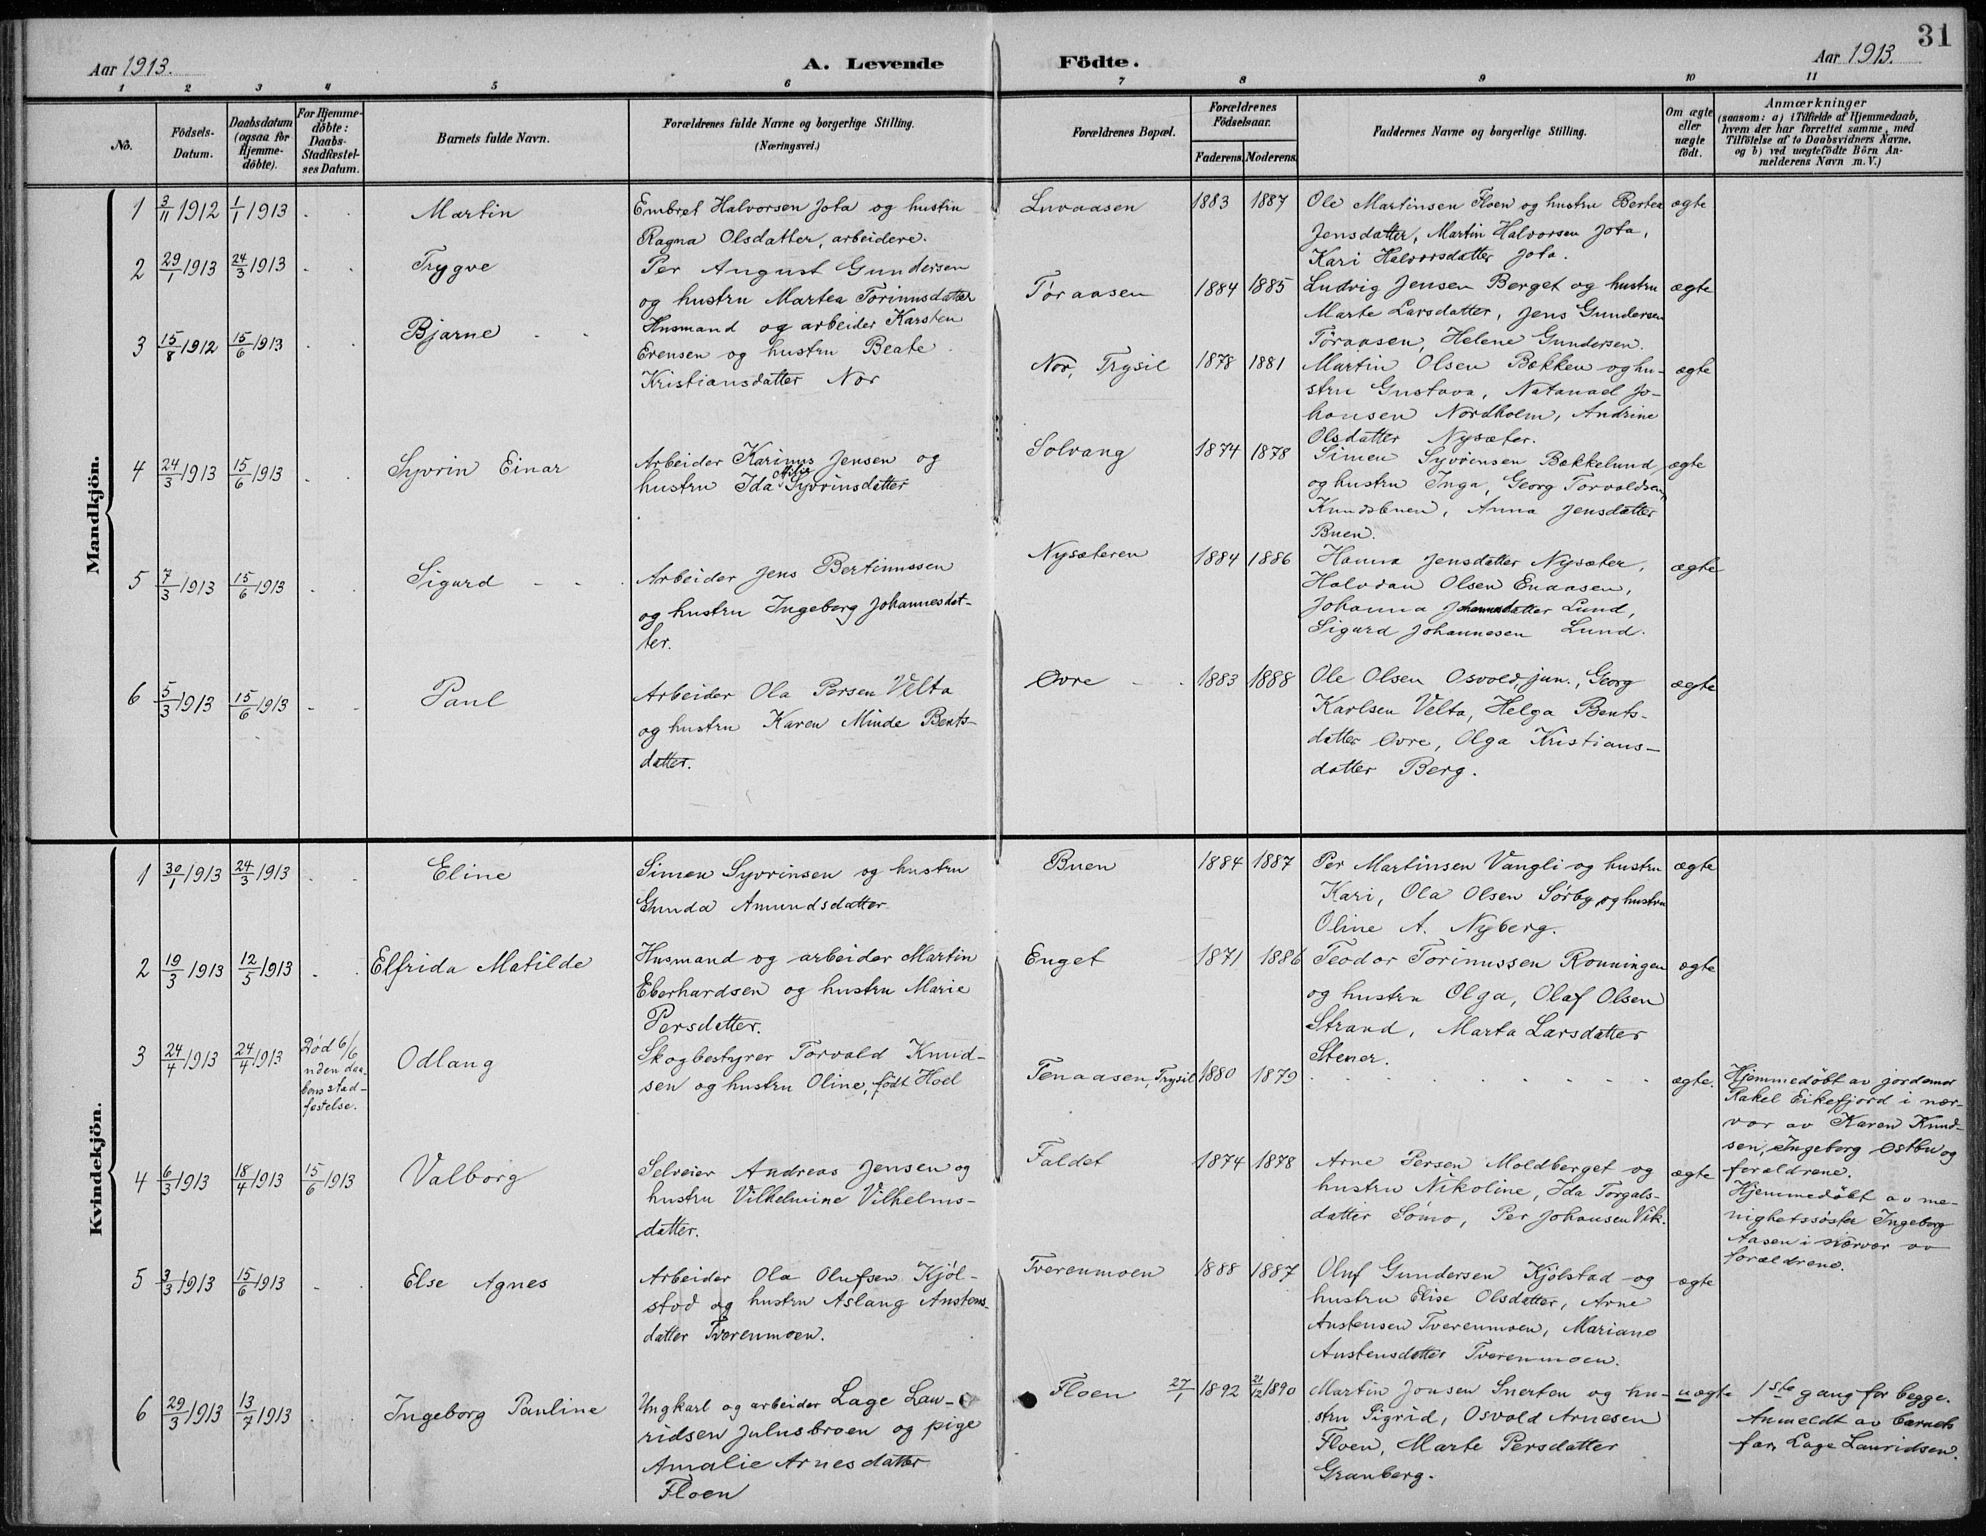 31
Aar 1913.
A. Levende Födte.
Aar 1913.
1 2 3 4 5 6 7 8 9 10 11
No.
Födsels-
Datum.
Daabsdatum
(ogsaa for
Hjemme-
döbte).
For Hjemme-
döbte:
Daabs-
Stadfæstel-
ses Datum.
Barnets fulde Navn.
Forældrenes fulde Navne og borgerlige Stilling.
(Næringsvei.)
Forældrenes Bopæl.
Forældrenes
Födselsaar.
Faderens. Moderens.
Faddernes Navne og borgerlige Stilling.
Om ægte
eller
uægte
födt.
Anmærkninger
(saasom: a) i Tilfælde af Hjemmedaab,
hvem der har forrettet samme, med
Tilföielse af to Daabsvidners Navne,
og b) ved uægtefödte Börn An-
melderens Navn m. V.)
Mandkjön.
1 3/11 1912 1/1 1913 Martin
Embret Halvorsen Jota og hustru
Ragna Olsdatter, arbeidere.
Luvaasen 1883 1887
Ole Martinsen Floen og hustru Bertea
Jensdatter, Martin Halvorsen Jota,
Kari Halvorsdatter Jota.
ægte
2 29/1 1913 24/3 1913 Trygve
Per August Gundersen
og hustru Martea Torinusdatter
Töraasen 1884 1885
Ludvig Jensen Berget og hustru
Marte Larsdatter, Jens Gundersen
Töraasen, Helene Gundersen.
ægte
3 15/8 1912 15/6 1913 Bjarne
Husmand og arbeider Karsten
Erensen og hustru Beate
Kristiansdatter Nor
Nor, Trysil 1878 1881
Martin Olsen Bækken og hu-
stru Gustava, Natanael Jo-
hansen Nordholm, Andrine
Olsdatter Nysæter.
ægte
4 24/3 1913 15/6 1913 Syvrin Einar
Arbeider Karinus Jensen og
hustru Ida Syvrinsdatter
Solvang 1874 1878
Simen Syvrinsen Bækkelund
og hustru Inga, Georg Torvaldsen
Knudsbuen, Anna Jensdatter
Buen.
ægte
5 7/3 1913 15/6 1913 Sigurd
Arbeider Jens Bertinussen
og hustru Ingeborg Johannesdat-
ter.
Nysæteren 1884 1886
Hanna Jensdatter Nysæter,
Halvdan Olsen Enaasen,
Johanna Johannesdatter Lund,
Sigurd Johannesen Lund.
ægte
6 5/3 1913 15/6 1913 Paul
Arbeider Ola Persen Velta
og hustru Karen Minde Bents-
datter.
Øvre 1883 1888
Ole Olsen Osvold, jun., Georg
Karlsen Velta, Helga Bents-
datter Øvre, Olga Kristians-
datter Berg.
ægte
Kvindekjön.
1 30/1 1913 24/3 1913 Eline
Simen Syvrinsen og hustru
Gunda Amundsdatter
Buen 1884 1887
Per Martinsen Vangli og hustru
Kari, Ola Olsen Sörby og hustru
Oline A. Nyberg.
ægte
2 19/3 1913 12/5 1913 Elfrida Matilde
Husmand og arbeider Martin
Eberhardsen og hustru Marie
Persdatter.
Enget 1871 1886
Teodor Torinussen Rønningen
og hustru Olga, Olaf Olsen
Strand, Marta Larsdatter
Stener.
ægte
3 24/4 1913 24/4 1913
Død 6/6
uden daa-
bens stad-
fæstelse.
Odlaug
Skogbestyrer Torvald Knud-
sen og hustru Oline, født Hoel
Tenaasen, Trysil 1880 1879
ægte.
Hjemmedøbt av jordemor
Rakel Eikefjord i nær-
vær av Karen Knud-
sen, Ingeborg Østby og
forældrene.
4 6/3 1913 18/4 1913 15/6 1913 Valborg
Selveier Andreas Jensen og
hustru Vilhelmine Vilhelms-
datter.
Faldet 1874 1878
Arne Persen Moldberget og
hustru Nikoline, Ida Torgals-
datter Sömo, Per Johansen Vik.
ægte
Hjemmedøbt av me-
nighetssøster Ingeborg
Aasen i nærvær av
forældrene.
5 3/3 1913 15/6 1913 Else Agnes
Arbeider Ola Olufsen Kjöl-
stad og hustru Aslaug Austens-
datter Tverenmoen.
Tverenmoen 1888 1887
Oluf Gundersen Kjölstad og
hustru Elise Olsdatter, Arne
Austensen Tverenmoen, Mariane
Austensdatter Tverenmoen.
ægte
6 29/3 1913 13/7 1913 Ingeborg Pauline
Ungkarl og arbeider Lage Lau-
ridsen Julusbroen og pige
Amalie Arnesdatter
Floen
Floen 27/1 1892 21/12 1890
Martin Jonsen Snerten og hu-
stru Sigrid, Osvald Arnesen
Floen, Marte Persdatter
Granberg.
uægte
1ste gang for begge.
Anmeldt av barnets
far, Lage Lauridsen.